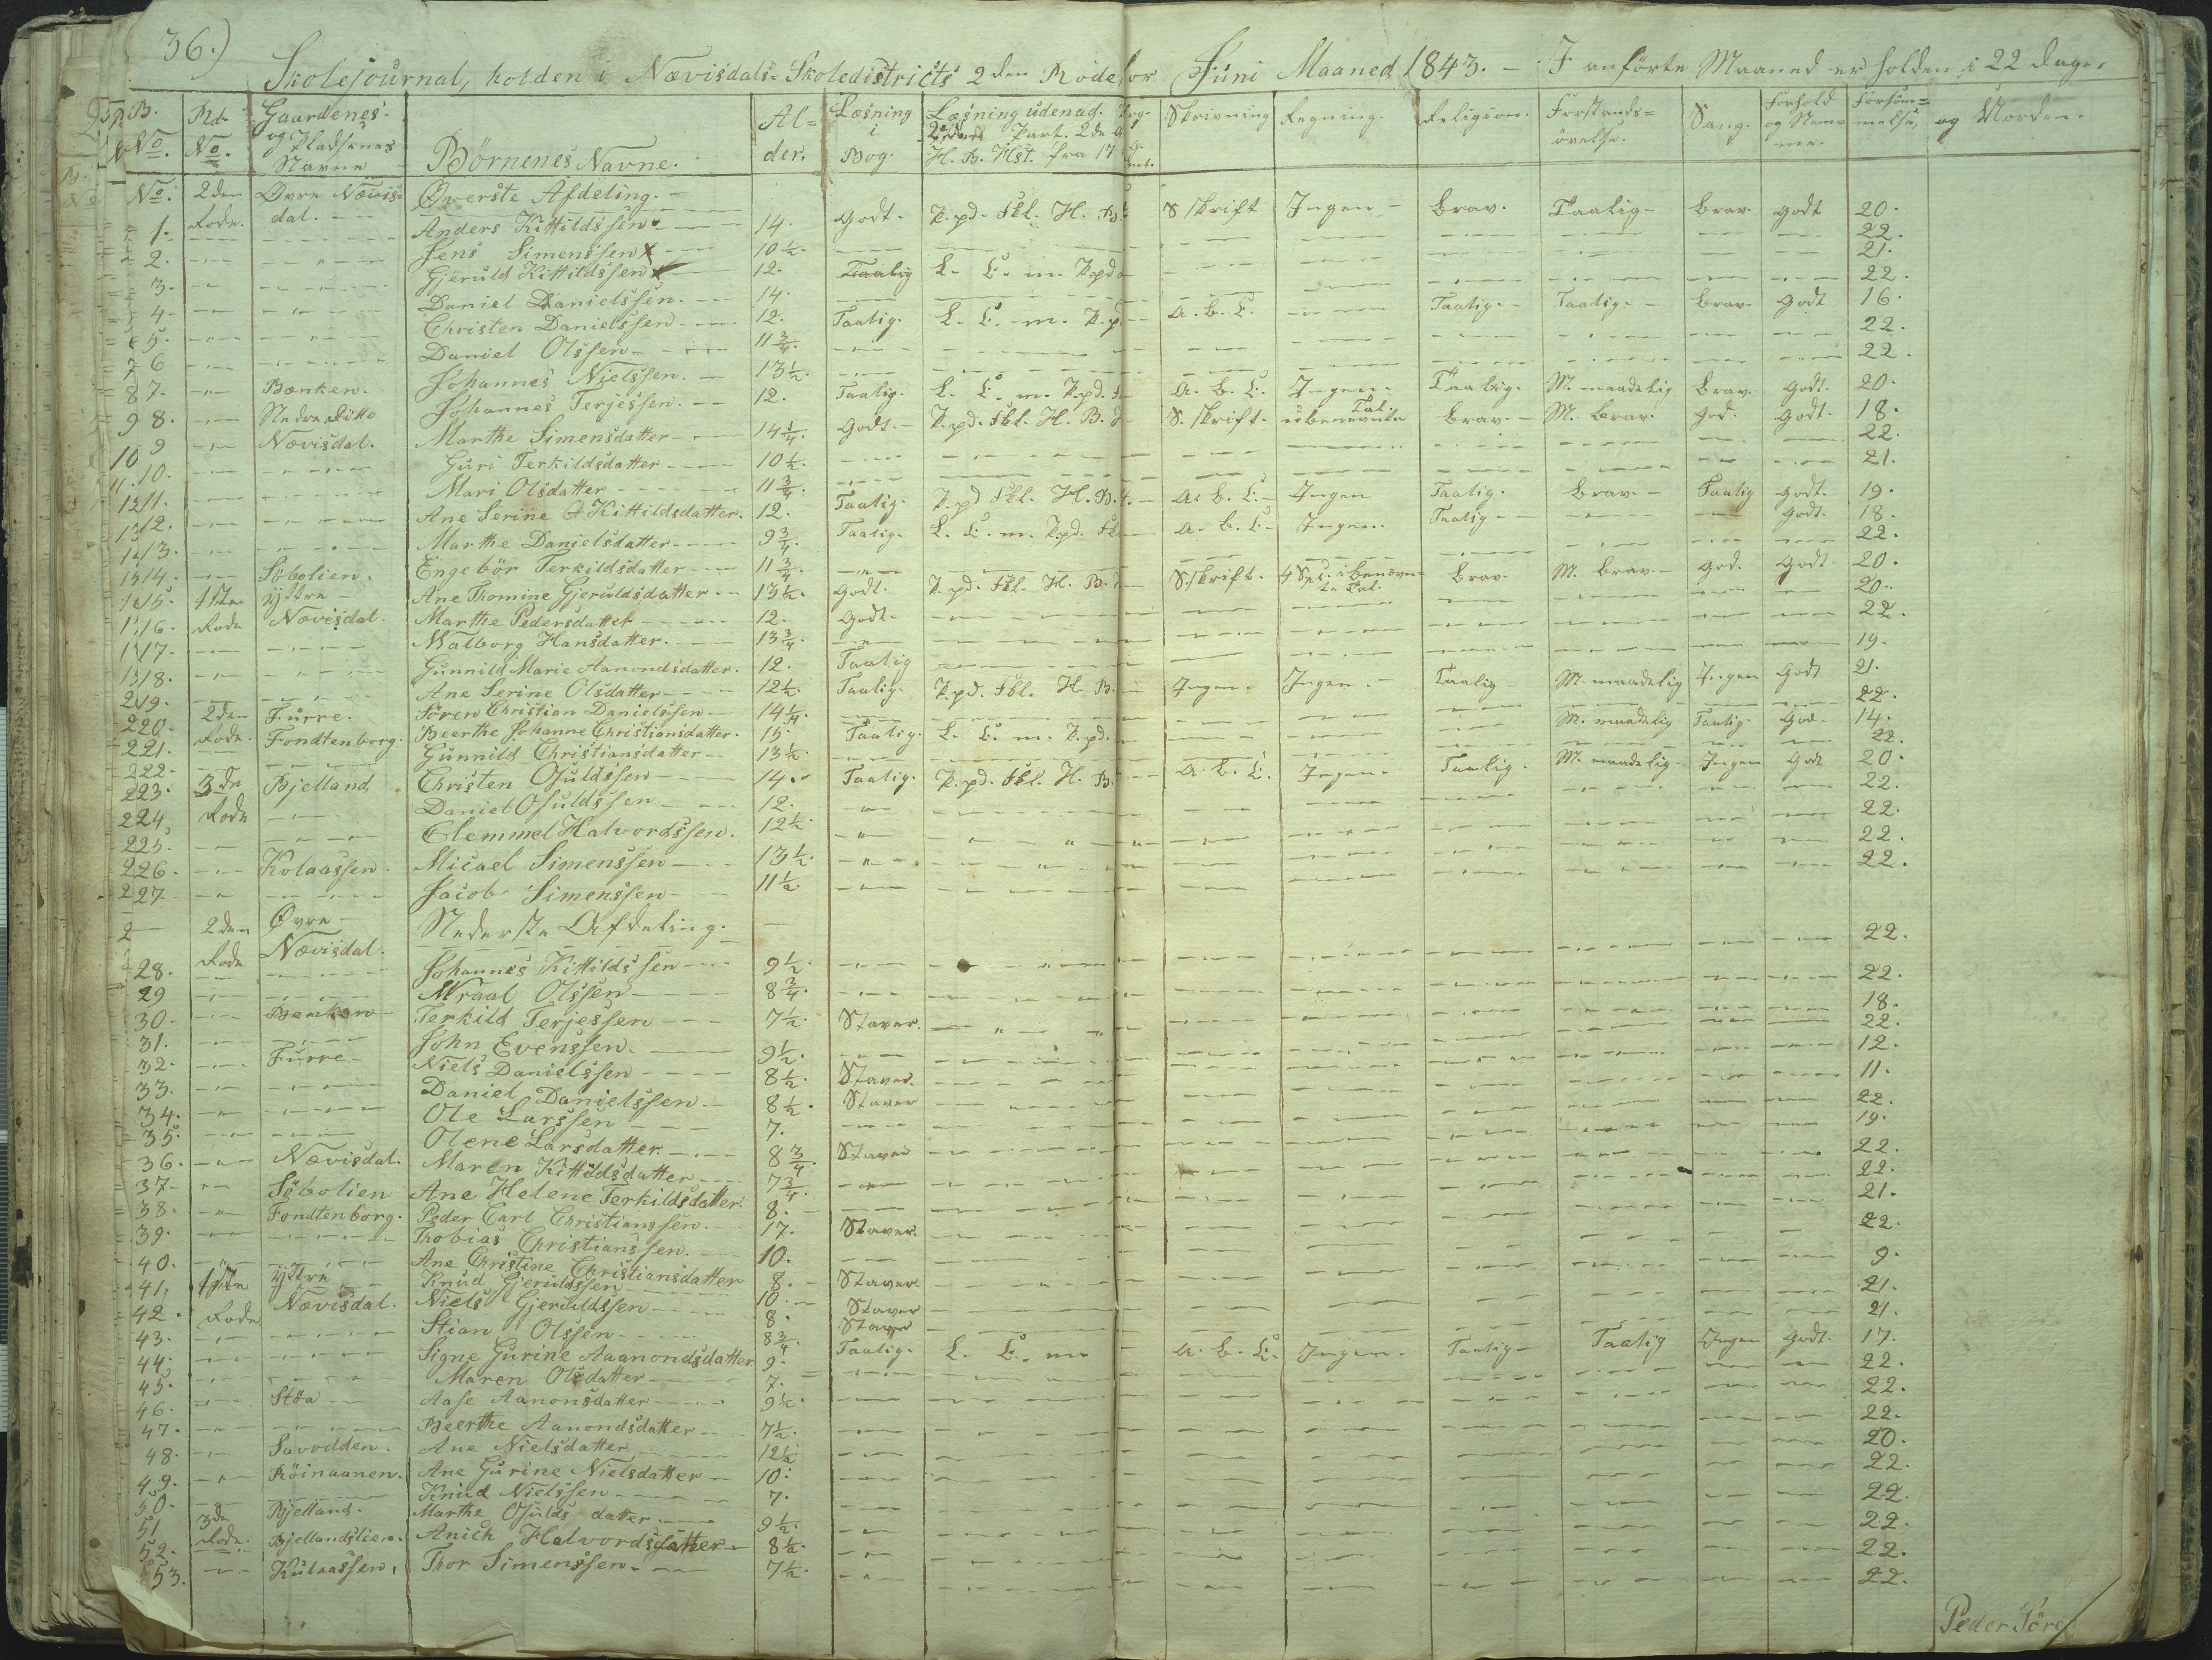 36.)
Skolejournal, holden i Nævisdals-Skoledistricts 2den Rode for Juni Maaned 1843. - I anförte Maaned er holden i 22 dage.
No. Rd. No. Gaardenes og Pladsernes Navne Börnenes Navne. Alder. Læsning i Bog. Læsning udenad. Skrivning Regning. Religion. Forstandsøvelse. Sang. Forhold og Nemme. Forsömmelse, og Morden.
No. 2den Rode. Øvre Nævisdal. Øverste Afdeling.
1. Anders Kittildssen 14. Godt. P.pd. Fkl. H. B. S. Skrift Ingen brav. Taalig brav. godt 20.
2. Jens Simenssen x 10½. 22.
3. Gjeruld Kittildssen x 12. Taalig L. C. m. P.pd 21.
4. Daniel Danielssen. 14. 22.
5. Christen Danielssen 12. Taalig. L. C. m. P.p. A. B. C. Taalig. Taalig. brav. godt 16.
6 Daniel Olssen 11¾. 22.
7. Johannes Nielssen. 13½. 22.
8. Bænken. Johannes Terjessen. 12. Taalig. L. C. m. P.pd. A. B. C. Ingen. Taalig. M. maadelig brav. Godt. 20.
Nedre ditto
9 Nævisdal. Marthe Simensdatter 14¼. Godt. P.pd. Fkl. H. B. S. Skrift. ubenevnte Tal brav. M. brav. god. Godt. 18.
10. Guri Terkildsdatter 10½. 22.
11. Mari Olsdatter 11¾. 21.
12. Ane Serine Kittildsdatter. 12. Taalig. P.pd Fkl. H. B. A. B. C. Ingen Taalig. brav. Taalig Godt. 19.
13. Marthe Danielsdatter 9¾. Taalig. L. C. m. P.pd. A. B. C. Ingen. Taalig Godt. 18.
14. Söbolien. Engebör Terkildsdatter 11¾. 22.
15. 1ste Rode Yttre Nævisdal. Ane Thomine Gjeruldsdatter 13½. Godt. P.pd. Fkl. H. B. S. Skrift. 4 Spe. i benævnte Tal. brav. M. brav. god. Godt. 20.
16. Marthe Pedersdatter 12. Godt. 20.
17. Malborg Hansdatter. 13¾. 22.
18. Gunnild Marie Aanondsdatter. 12. Taalig 19.
19. Ane Serine Olsdatter 12½. Taalig. P.pd. Fkl. H. B. Ingen. Ingen. Taalig M. maadelig Ingen Godt 21.
20. 2den Rode. Furre. Sören Christian Danielssen 14¼. 22.
21. Fondtenborg. Beerthe Johanne Christiansdatter. 15. Taalig. L. C. m. P.pd. M. maadelig Taalig God. 14.
22. Gunnild Christiansdatter 13½. 22.
23. 3de Rode Bjelland Christen Osuldssen 14. Taalig. P.pd. Fkl. H. B. A. B. C. Ingen. Taalig. M. maadelig. Ingen Godt 20.
24. Daniel Osuldssen 12. 22.
25. Clemmel Halvordssen. 12½ 22.
26. Kolaassen. Micael Simenssen 13½. 22.
27. Jacob Simenssen 11½ 22.
2den Rode Øvre Nævisdal. Nederste Afdeling.
28. Johannes Kittildssen 9½. 22.
29 Wraal Olssen 8¾. 22.
30. Benken Terkild Terjessen 7½. Staver. 18.
31. John Evenssen. 9½. 22.
32. Furre Niels Danielssen 8½. Staver. 12.
33. Daniel Danielssen. 8½. Staver 11.
34. Ole Larssen 7. 22.
35. Olene Larsdatter 8¾. Staver 19.
36. Nævisdal. Maren Kittildsdatter 7¾. 22.
37. Söbolien Ane Helene Terkildsdatter. 8. 22.
38. Fondtenborg. Peder Carl Christianssen. 17. Staver. 21.
39. Thobias Christianssen. 10. 22.
40. Ane Christine Christiansdatter 8. Staver. 9.
41. 1ste Rode Yttre Nævisdal. Knud Gjeruldssen 10. Staver 21.
42. Niels Gjeruldssen 8. Staver 21.
43. Stian Olssen. 8¾. Taalig. L. C. m A. B. C. Ingen. Taalig Taalig Ingen Godt. 17.
44. Signe Gurine Aaanondsdatter 9. 22.
45. Maren Olsdatter 7. 22.
46. Stöa Aase Aanonsdatter 9½. 22.
47. Beerthe Aanondsdatter 7½. 20.
48. Savodden. Ane Nielsdatter 12½ 22.
49. Röinaanen. Ane Gurine Nielsdatter 10. 22.
50. Knud Nielssen 7. 22.
51 3de Rode. Bjelland. Marthe Osulds datter 9½. 22.
52. Bjellandslien. Anich Halvordsdatter 8½. 22.
53. Kulaassen, Thor Simenssen. 7½.
Peder Söre